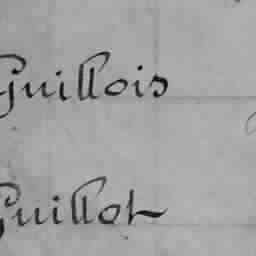 Guillois
Guillot